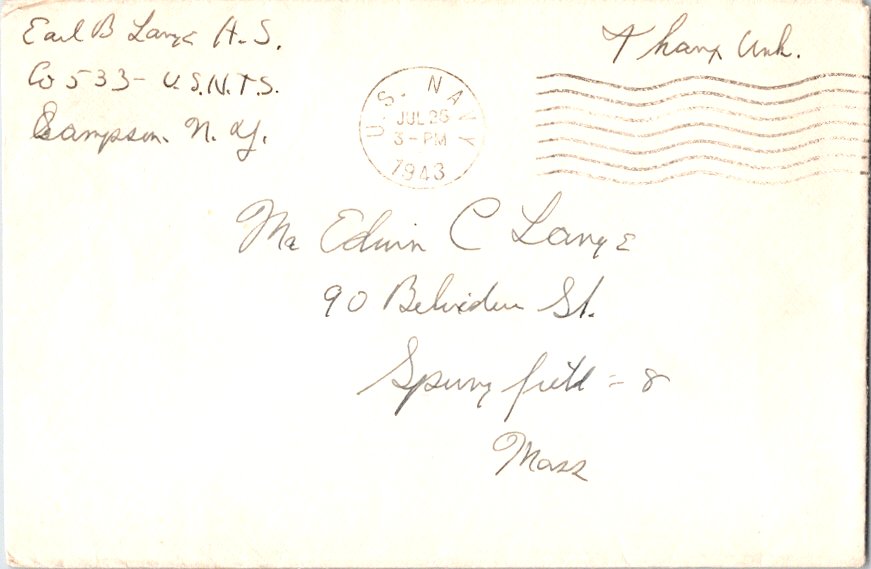 Earl B Lange A.S.
Co 533 - U.S.N.T.S.
Sampson. N. Y.
Thanx Unk.
U.S. NAVY
JUL 26
3-PM
1943
Mr Edwin C Lange
90 Belvidere St.
Springfield - 8
Mass